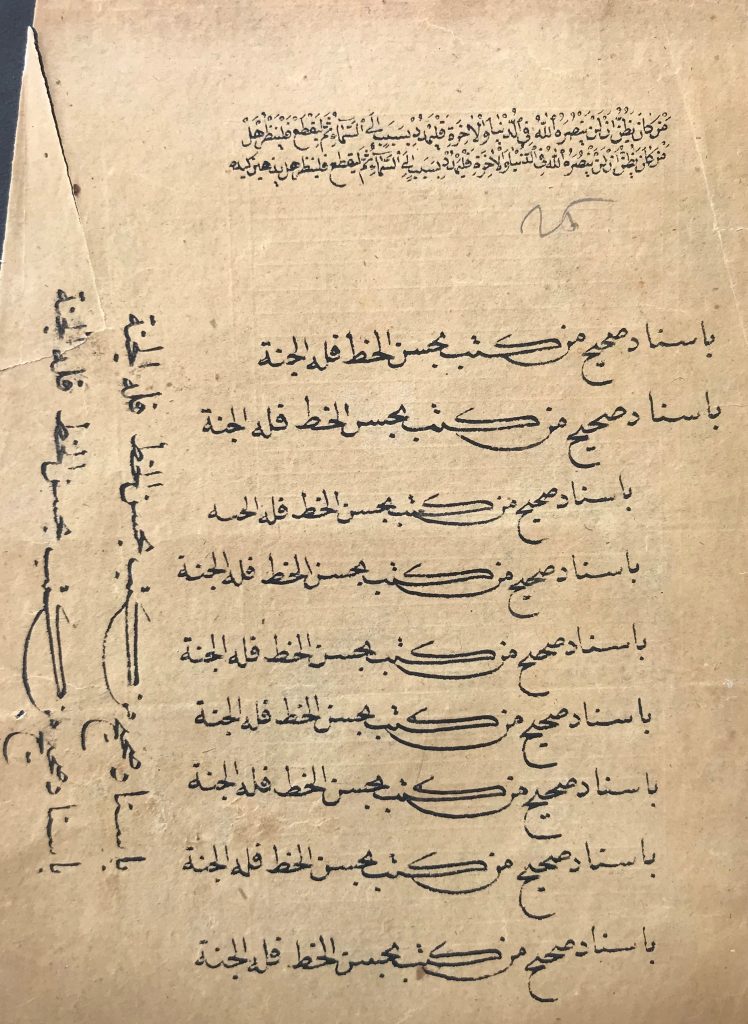 مَنْ كَانَ يَظُنُّ اَنْ لَنْ يَنْصُرَهُ اللّٰهُ فِي الدُّنْيَا وَلْاٰخِرَةِ فَلْيَمْدُدْ بِسَبَبٍ اِلَى السَّمَآءِ ثُمَّ لْيَقْطَعْ فَلْيَنْظُرْ هَلْ
مَنْ كَانَ يَظُنُّ اَنْ لَنْ يَنْصُرَهُ اللّٰهُ فِي الدُّنْيَا وَلْاٰخِرَةِ فَلْيَمْدُدْ بِسَبَبٍ اِلَى السَّمَآءِ ثُمَّ لْيَقْطَعْ فَلْيَنْظُرْ هَلْ يُذْهِبَنَّ كَيْدُهُ
باسناد صحيح من كتب بحسن الخط فله الجنة
باسناد صحيح من كتب بحسن الخط فله الجنة
باسناد صحيح من كتب بحسن الخط فله الجنة
باسناد صحيح من كتب بحسن الخط فله الجنة
باسناد صحيح من كتب بحسن الخط فله الجنة
باسناد صحيح من كتب بحسن الخط فله الجنة
باسناد صحيح من كتب بحسن الخط فله الجنة
باسناد صحيح من كتب بحسن الخط فله الجنة
باسناد صحيح من كتب بحسن الخط فله الجنة
باسناد صحيح من كتب بحسن الخط فله الجنة
باسناد صحيح من كتب بحسن الخط فله الجنة